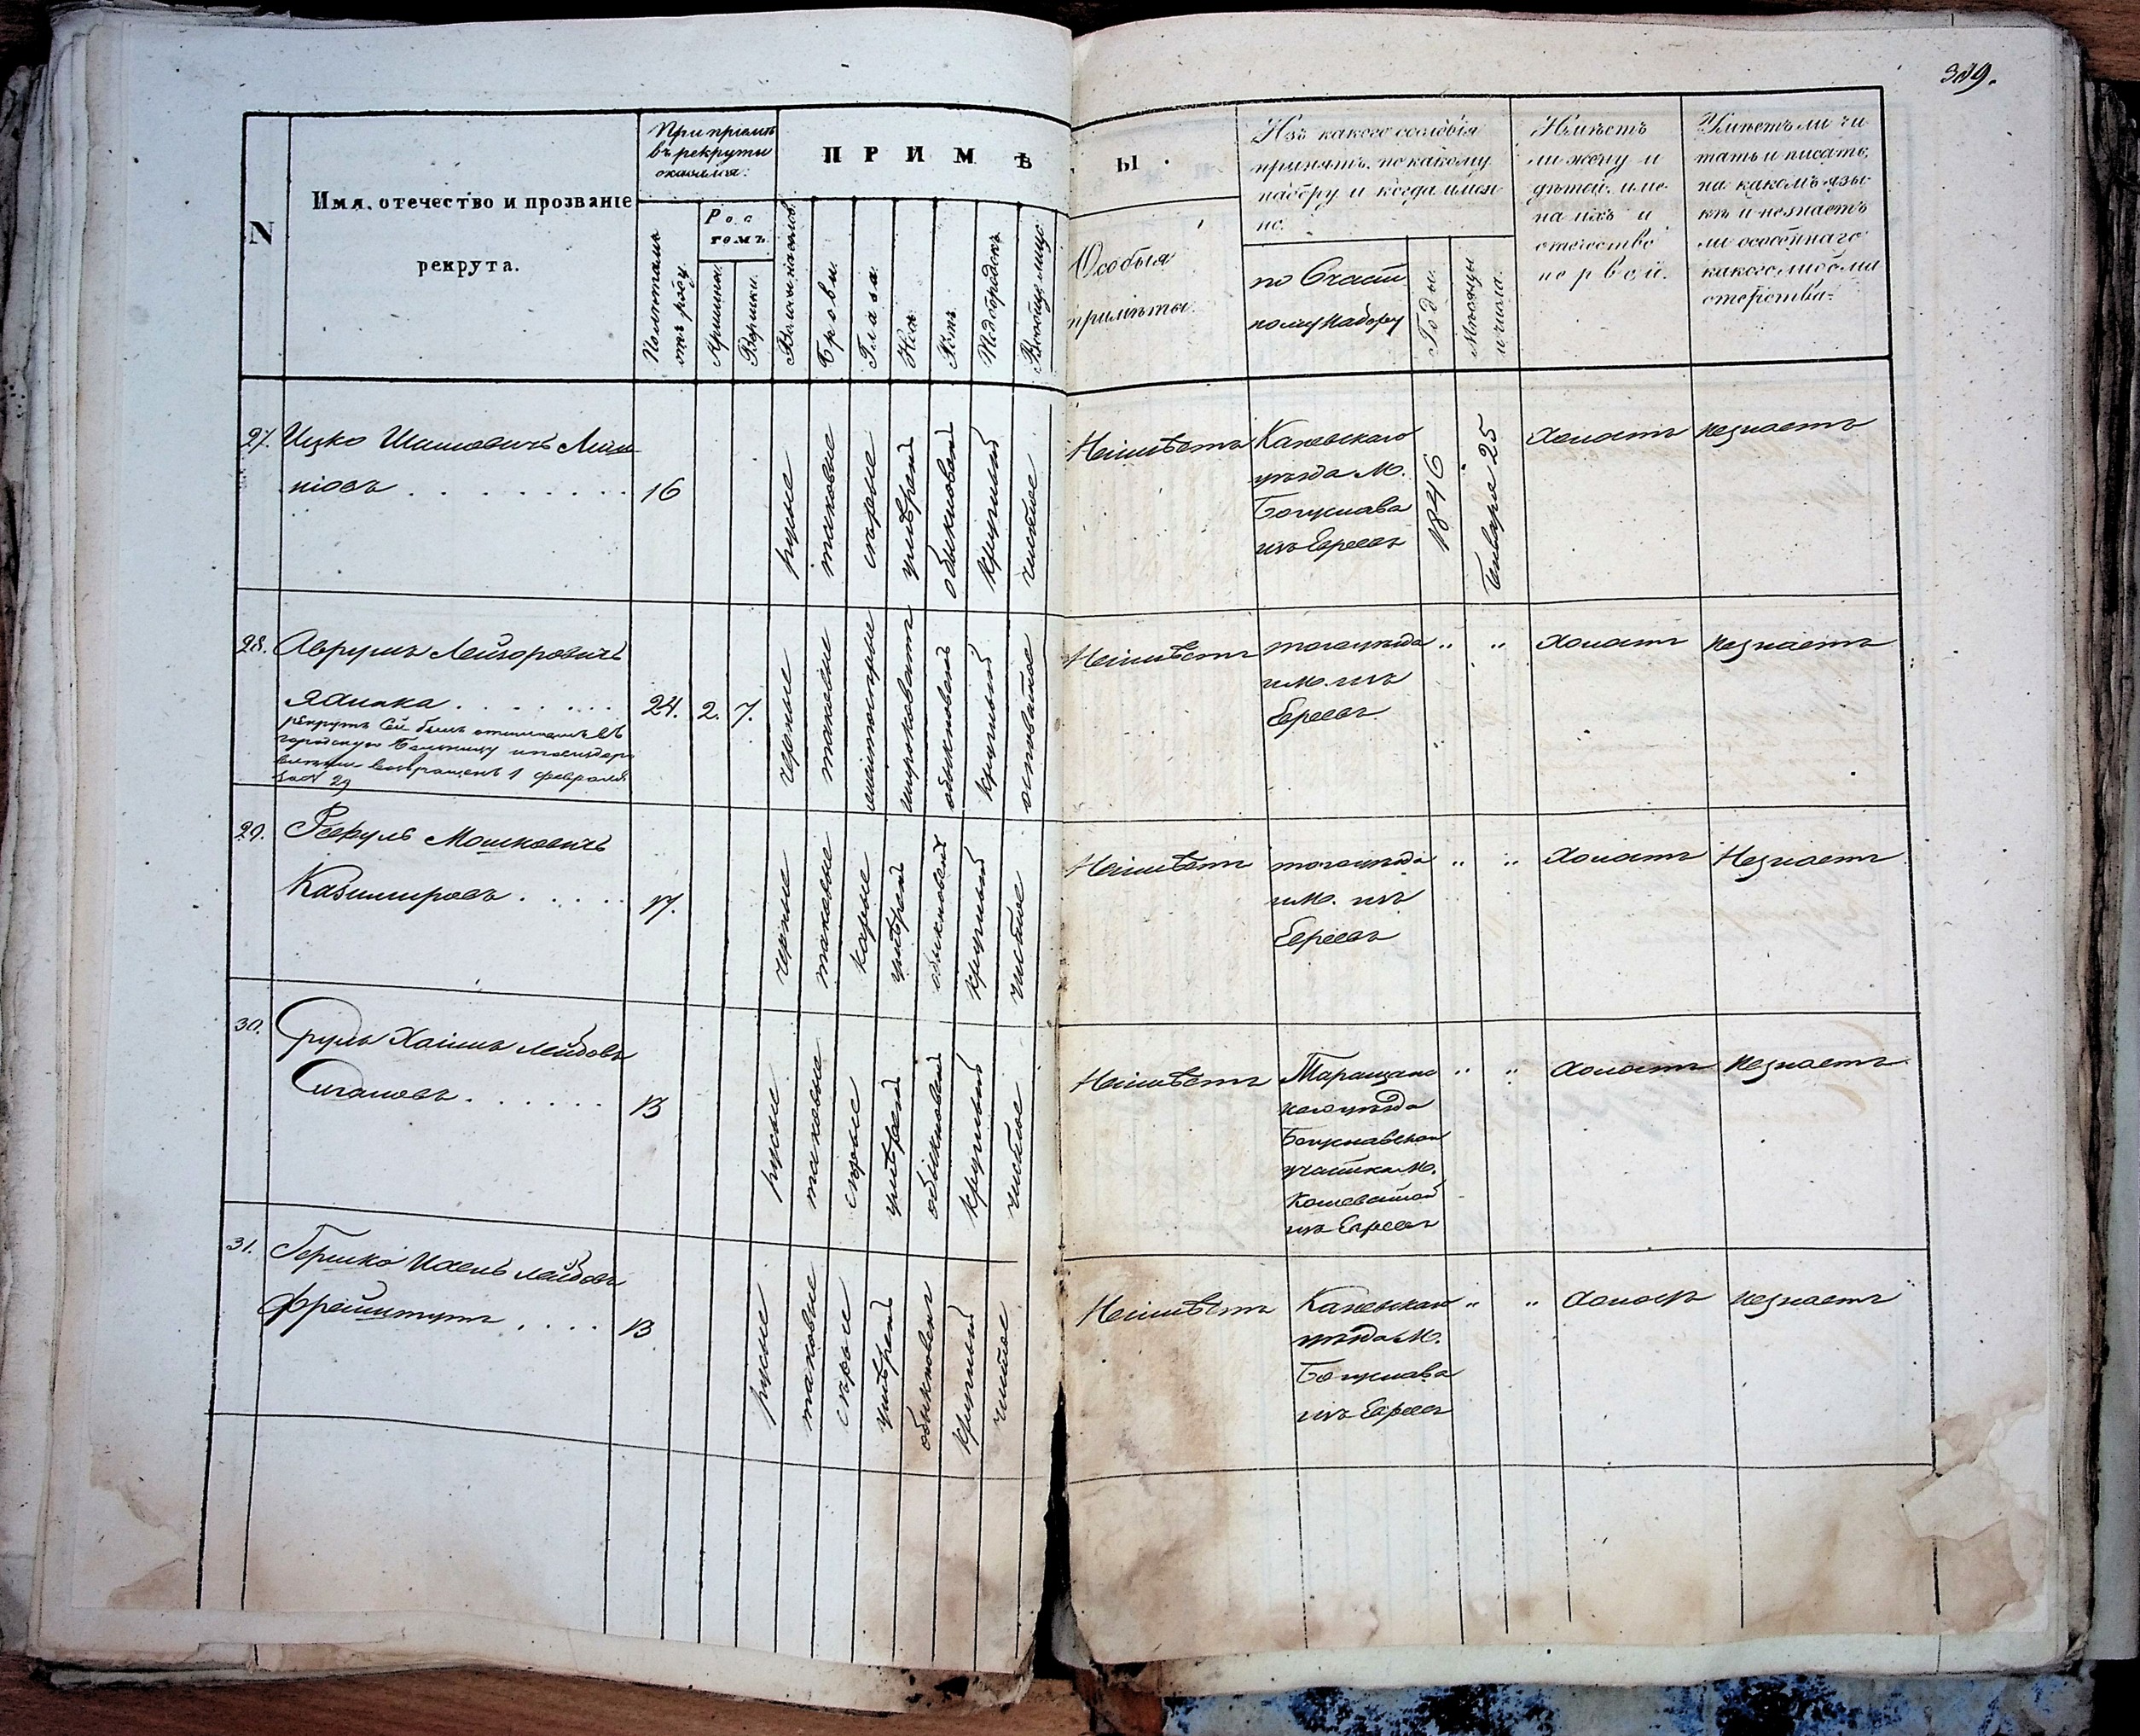 319.
N
Имя, отечество и прозваніе
рекрута.
При пріемѣ
въ рекруты
оказался:
Полнѣталъ
отъ роду
Рос
томъ
Аршины.
Вершки.
ПРИМѢ
Брови.
Глаза.
Носъ
Ротъ
Подбородокъ
Вообще лице
Ы.
Особыя
примѣты.
Изъ какого сословія
принятъ, по какому
набору и когда имен
но.
по Участ
ному Набору
Годы.
Мѣсяцы
и числа.
Имѣетъ
ли жену и
дѣтей, име
на ихъ и
отечество
первой.
Умѣетъ ли чи
тать и писать,
на какомъ язы
кѣ и незнаетъ
ли особеннаго
какого либо ма
стерства.
27.
Ицко Шмиовичъ
16
русые
таковые
сѣрые
умѣрен
обыкновен
круглый
чистое
Неимѣетъ
Каневскаго
уѣзда М.
Богуслава
изъ Евреевъ
1846
Генваря 25
Холостъ
незнаетъ
28.
Аврумъ Лейзоровичъ
24.
2.
7.
рекрутъ Сей былъ отсылаемъ въ
городскую Больницу и
возвращенъ 1 февраля
черные
таковые
широковатъ
обыкновенъ
круглый
Неимѣетъ
тогоуѣзда
и М. изъ
Евреевъ
"
"
Холостъ
незнаетъ
29.
Мошковичъ
Казимировъ
17.
черные
таковые
карые
умѣрен
обыкновен
круглый
чистое
Неимѣетъ
тогоуѣзда
и М. изъ
Евреевъ
"
"
Холостъ
Незнаетъ
30.
Сруль Хаимъ Лейбовъ
Сигаловъ
13
русые
таковые
сѣрые
умѣрен
обыкновен
круглый
чистое
Неимѣетъ
Таращанс
каго уѣзда
Богуславскаго
участка М.
Кошеватой
изъ Евреевъ
"
"
Холостъ
незнаетъ
31.
Гершко Лейбовъ
13
русые
таковые
сѣрые
умѣрен
обыкновен
круглый
чистое
Неимѣетъ
Каневскаго
уѣзда М.
Богуслава
изъ Евреевъ
"
"
Холостъ
незнаетъ